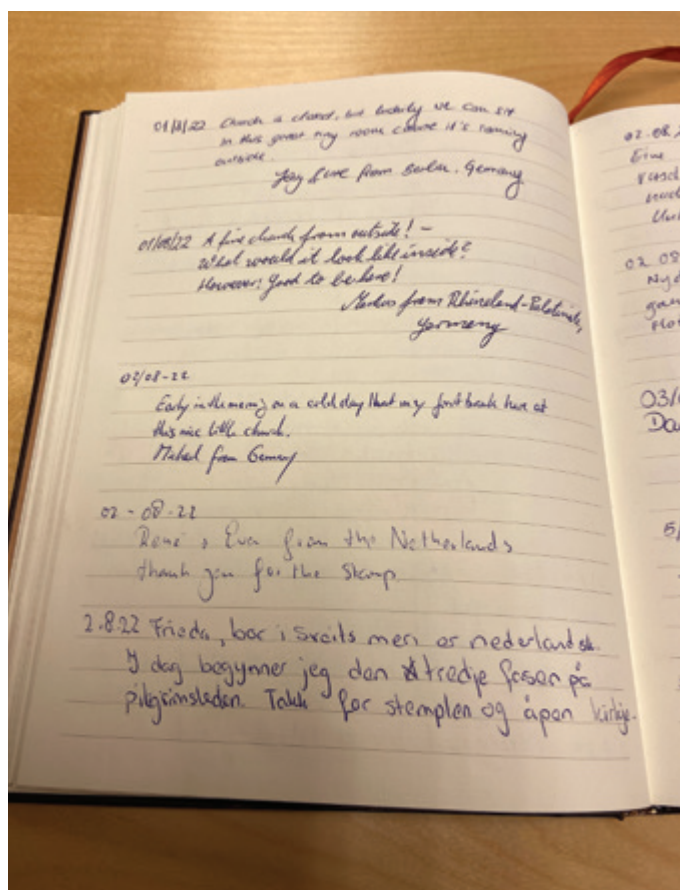 01/8/22 Church is closed, but luckily we can sit
in this great tiny room cause it's raining
outside.
from Berlin, Germany
01/08/22 A fine church from outside! –
What would it look like inside?
However: Good to be here!
Markus from Rhineland-Palatinate,
Germany
02/08-22
Early in the morning on a cold day that my first break here at
this nice little church.
Michael from Germany
02-08-22
René & Eva from the Netherlands
thank you for the stamp
2.8.22 Frieda, bor i Sveits men er nederlandsk.
I dag begynner jeg den tredje fasen på
pilgrimsleden. Takk for stemplen og åpen kirkje.
02.08.2
Eine
02 08
03/
Da
5/